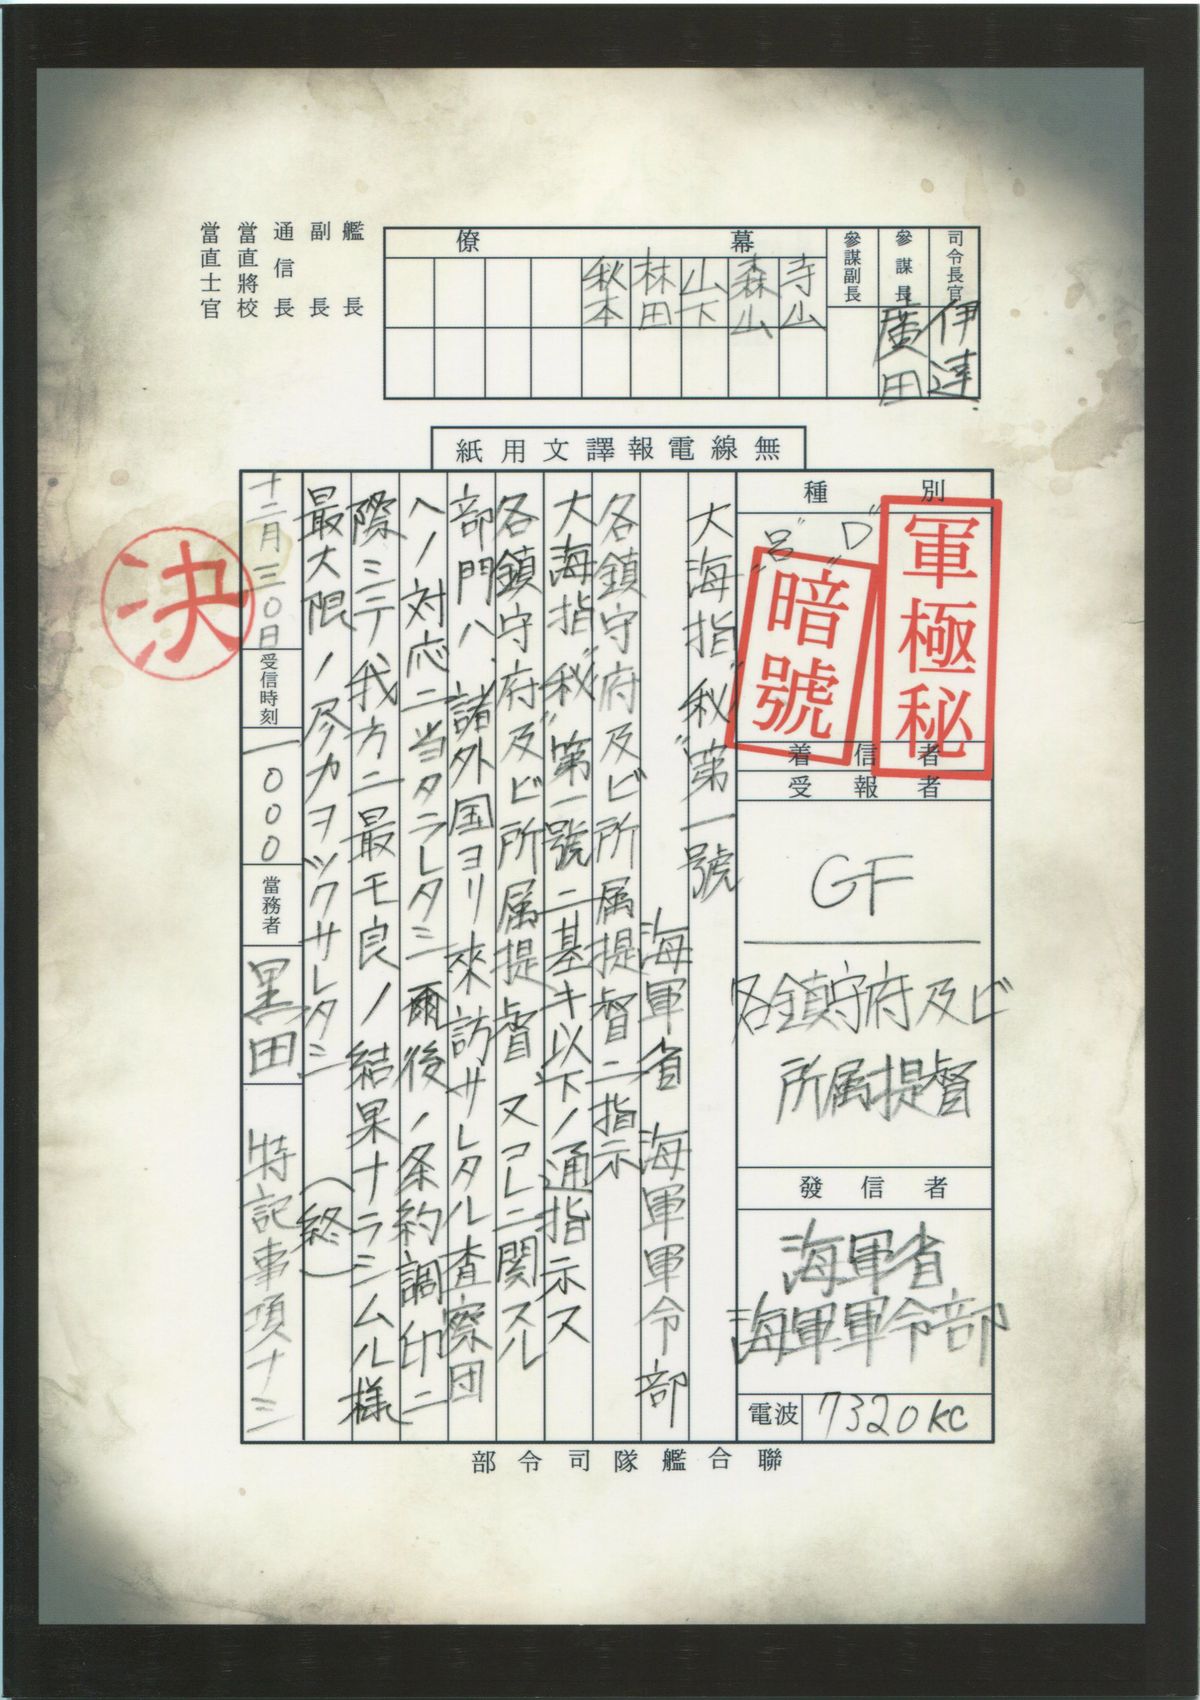 司令長官
伊達
參謀長
廣田
參謀副長
幕僚
寺山
森山
山下
林田
秋本
艦長
副長
通信長
當直將校
當直士官
無線電報譯文用紙
種別
軍極秘
暗號
"D"
"呂"
着信者
受報者
GF
各鎮守府及ビ
所属提督
發信者
海軍省
海軍軍令部
電波
7320KC
大海指"秘"第一號
海軍省 海軍軍令部
各鎮守府及ビ所属提督ニ指示
大海指"秘"第一號ニ基キ以下ノ通指示ス
各鎮守府及ビ所属提督、又コレニ関スル
部門ハ、諸外国ヨリ来訪サレタル査察団
ヘノ対応ニ当タラレタシ 爾後ノ条約調印ニ
際シテ我方ニ最モ良ノ結果ナラシムル様
最大限ノ尽力ヲツクサレタシ
(終)
十二月三〇日
受信時刻
一〇〇〇
當務者
黒田
特記事項ナシ
決
聯合艦隊司令部